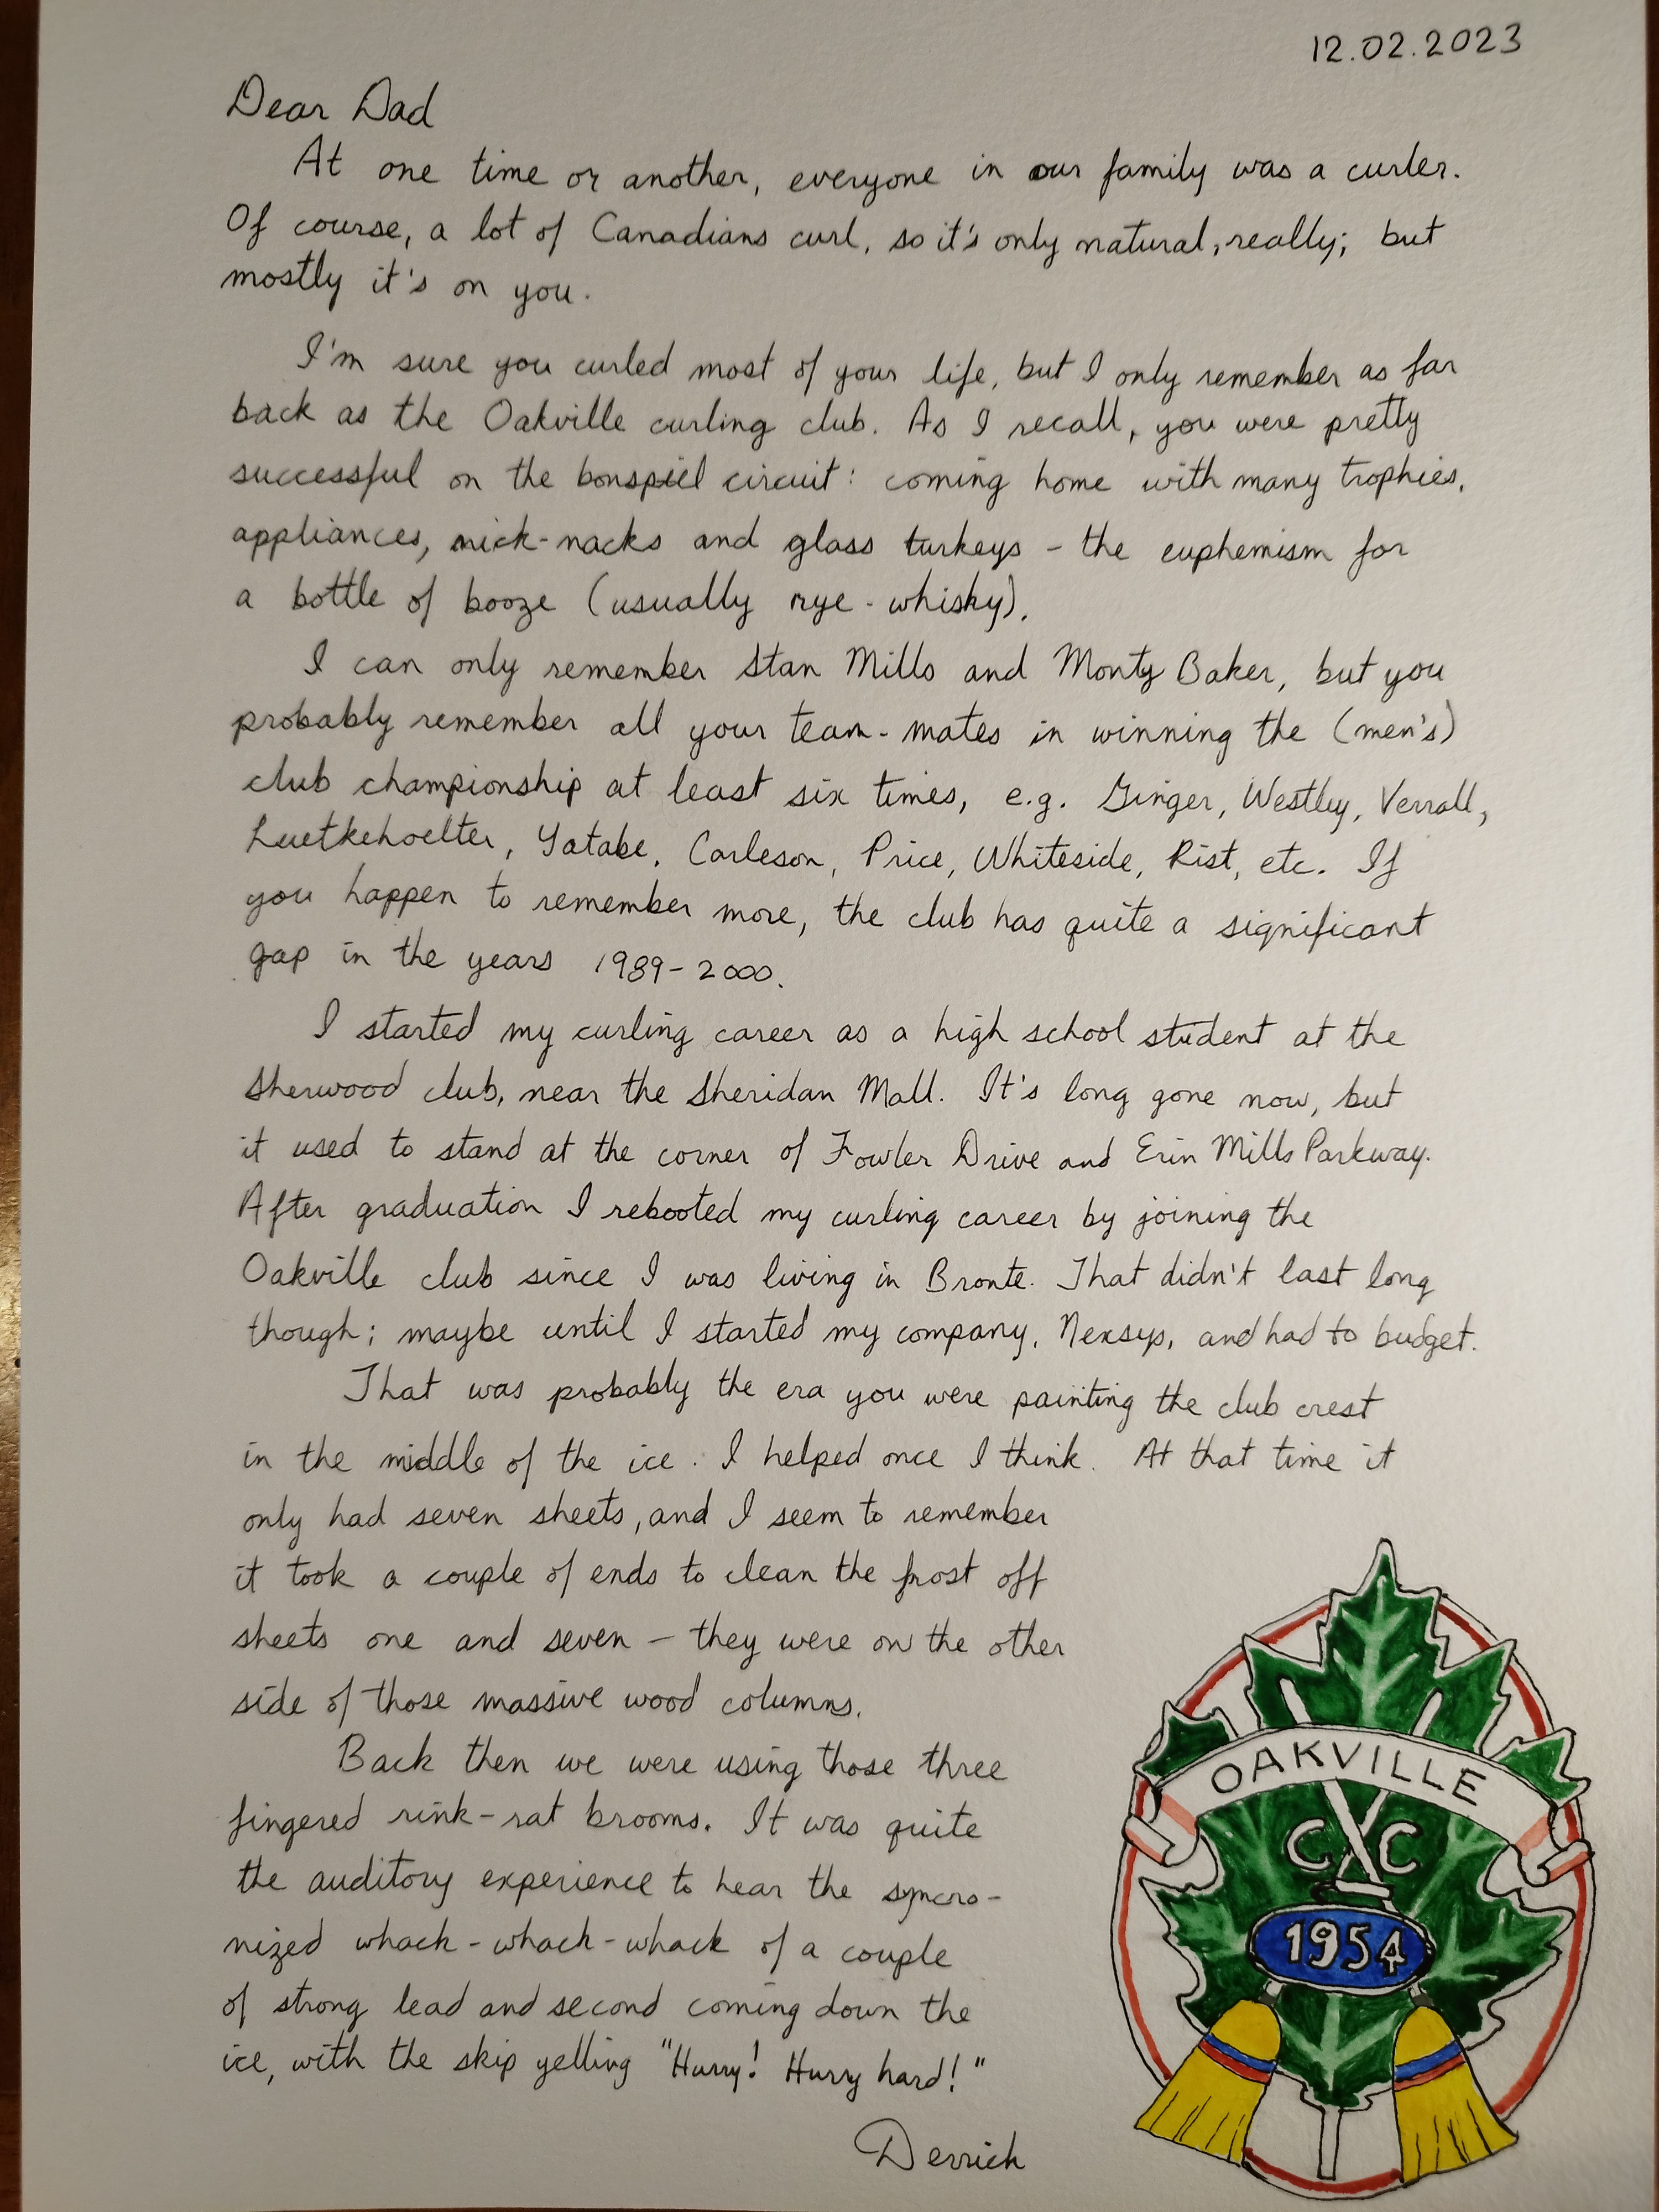 12.02.2023
Dear Dad
At one time or another, everyone in our family was a curler.
Of course, a lot of Canadians curl, so it's only natural, really; but
mostly it's on you.
I'm sure you curled most of your life, but I only remember as far
back as the Oakville curling club. As I recall, you were pretty
successful on the bonspiel circuit: coming home with many trophies,
appliances, nick-nacks and glass turkeys - the euphemism for
a bottle of booze (usually rye-whisky).
I can only remember Stan Mills and Monty Baker, but you
probably remember all your team-mates in winning the (men's)
club championship at least six times, e.g. Ginger, Westley, Verrall,
Luetkehoelter, Yatabe, Carleson, Price, Whiteside, Rist, etc. If
you happen to remember more, the club has quite a significant
gap in the years 1989-2000.
I started my curling career as a high school student at the
Sherwood club, near the Sheridan Mall. It's long gone now, but
it used to stand at the corner of Fowler Drive and Erin Mills Parkway.
After graduation I rebooted my curling career by joining the
Oakville club since I was living in Bronte. That didn't last long
though; maybe until I started my company, Nexsys, and had to budget.
That was probably the era you were painting the club crest
in the middle of the ice. I helped once I think. At that time it
only had seven sheets, and I seem to remember
it took a couple of ends to clean the frost off
sheets one and seven - they were on the other
side of those massive wood columns.
Back then we were using those three
fingered rink-rat brooms. It was quite
the auditory experience to hear the syncro-
nized whack-whack-whack of a couple
of strong lead and second coming down the
ice, with the skip yelling "Hurry! Hurry hard!"
Derrich
OAKVILLE
C C
1954